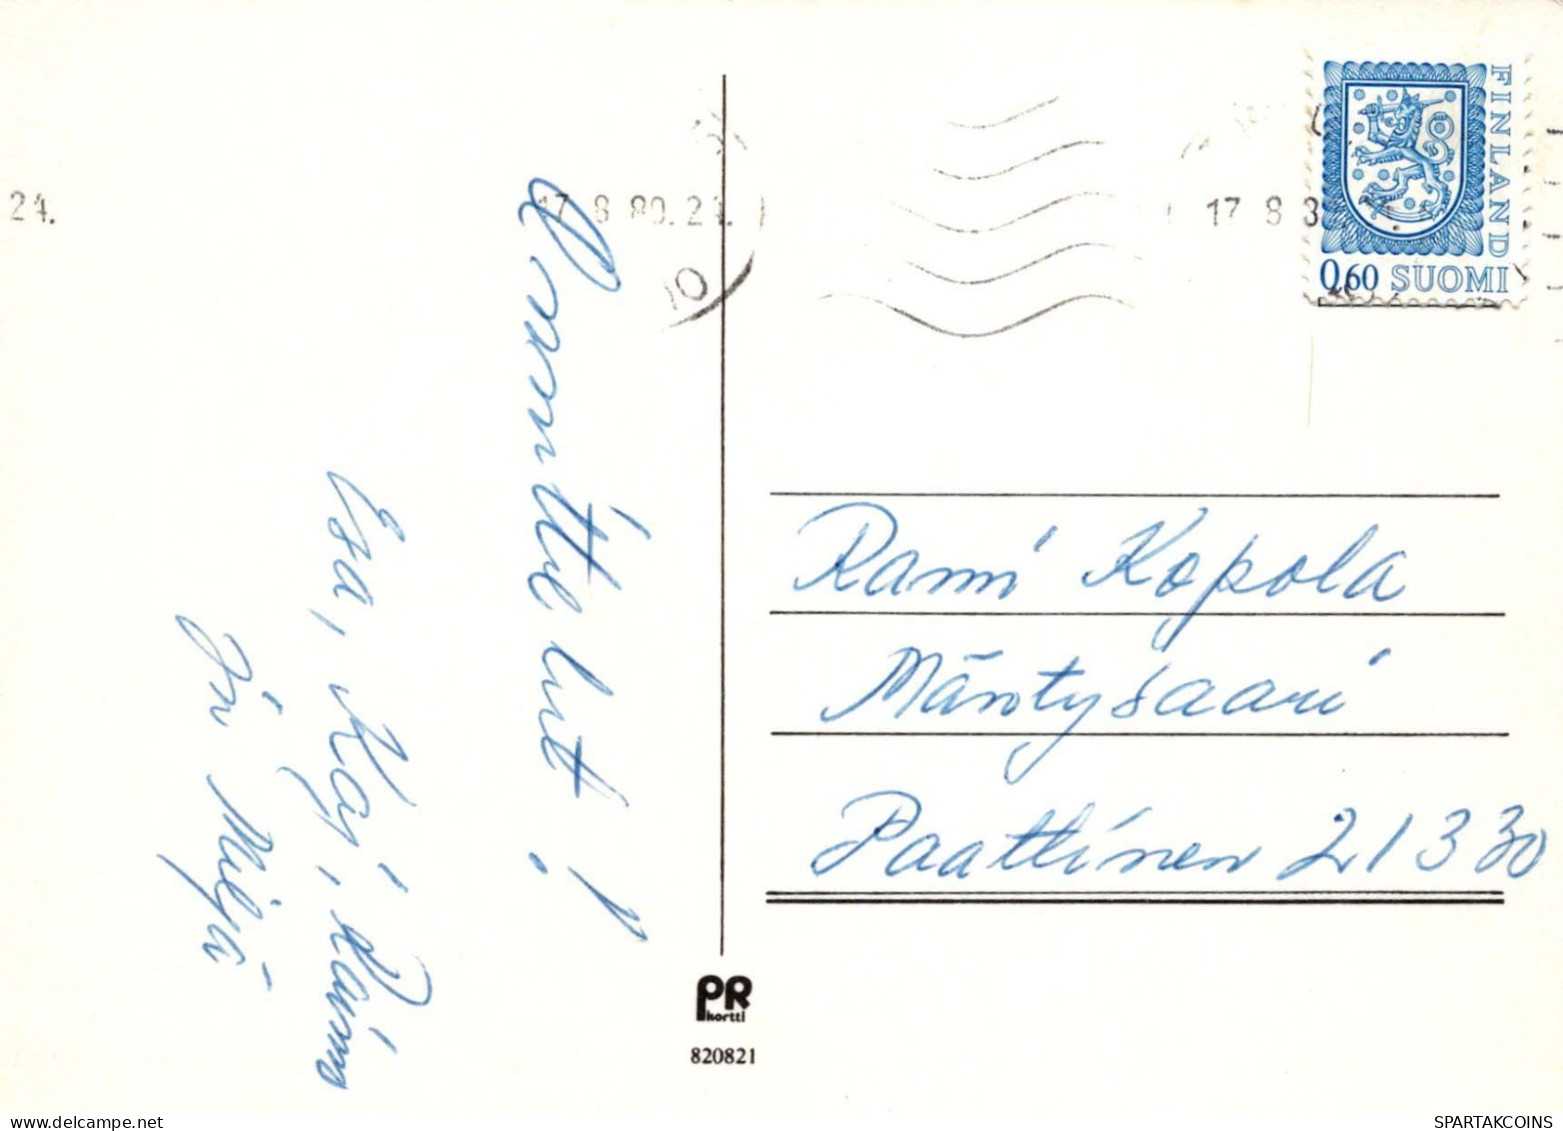 24.
17 8 80.21.
10
17 8 8
FINLAND
0,60 SUOMI
Onnittelut!
Esa, Kaj, Raimo
ja Miljä
Rami Kopola
Mäntysaari
Paattinen 21330
PR
kortti
820821
SPARTAKCOINS